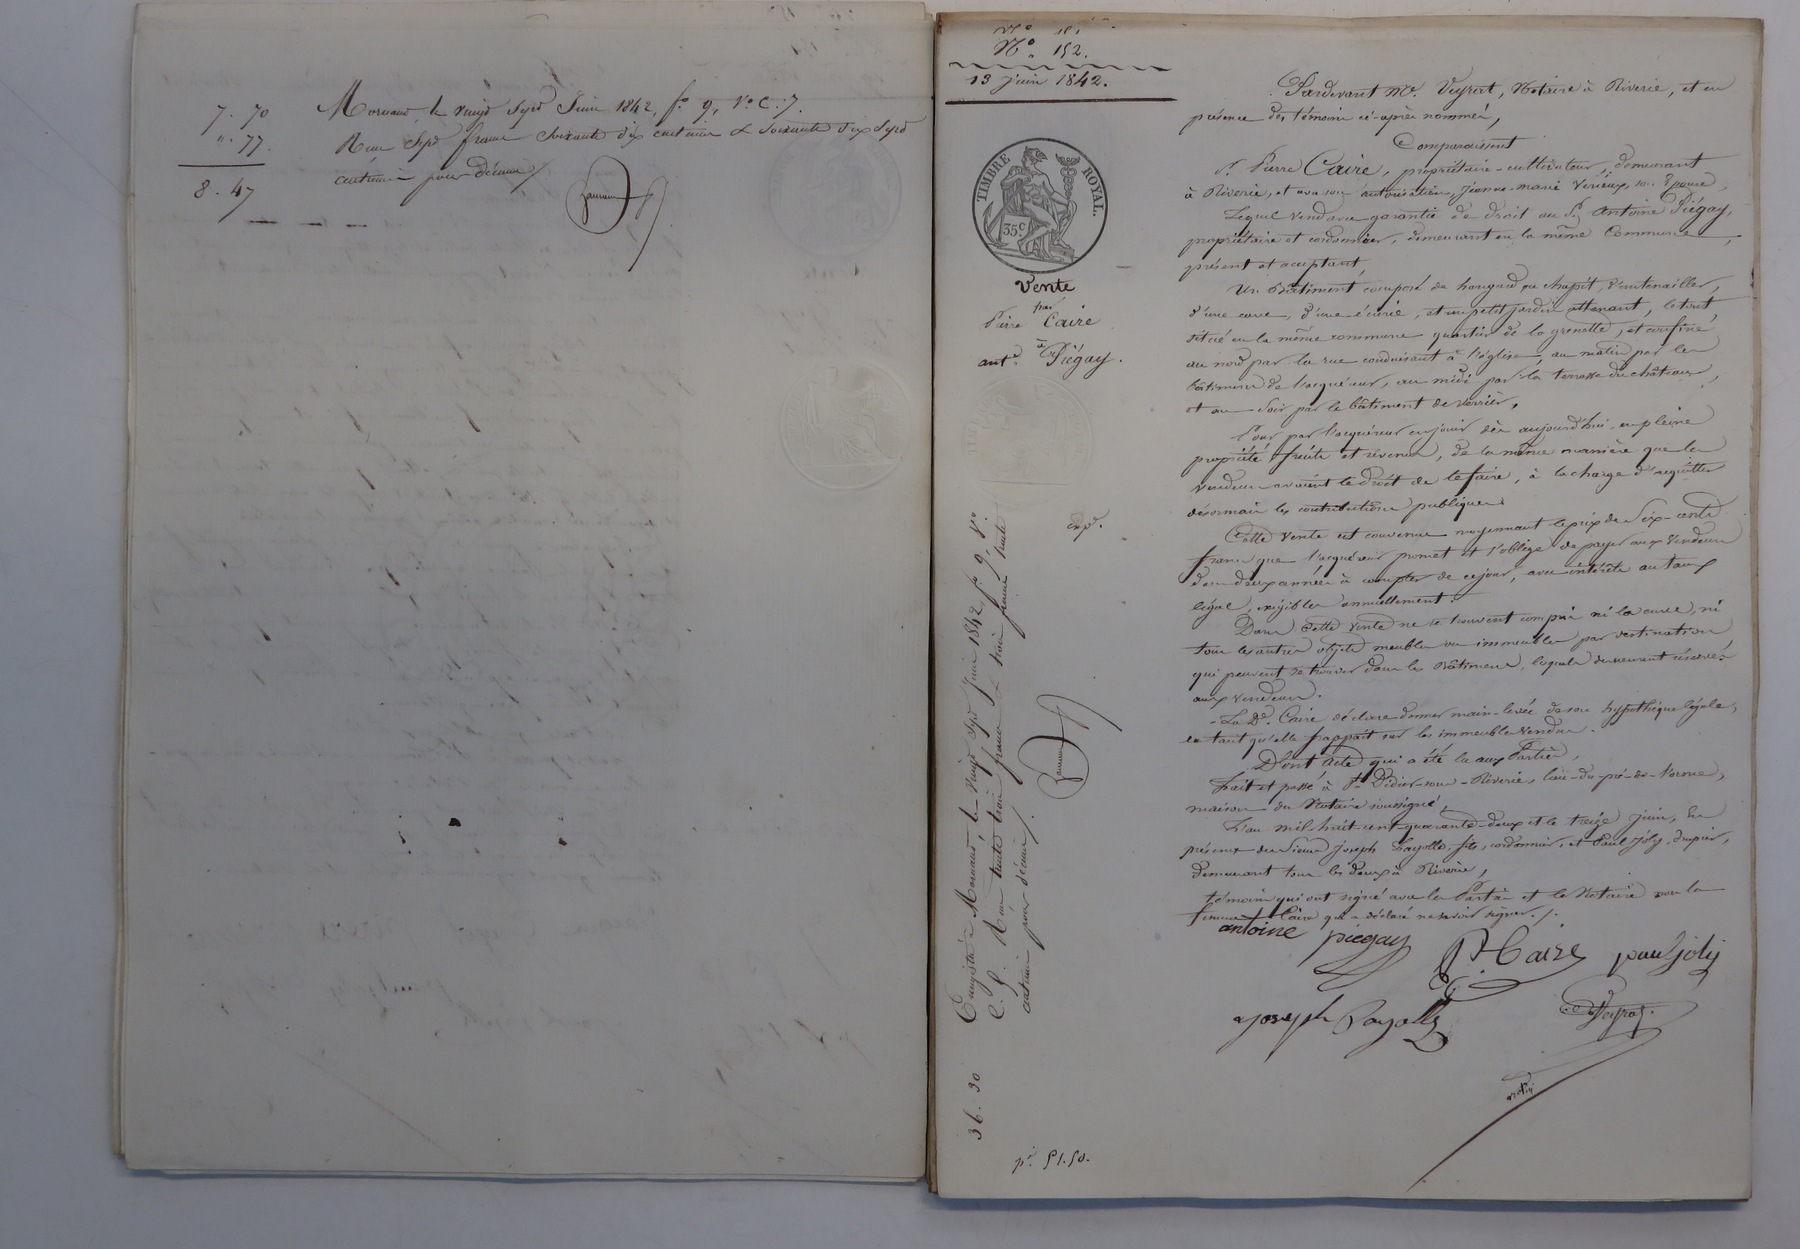 7. 70
". 77.
8. 47
Mornant, le vingt sept Juin 1842, f.º 9, V.º C. 7.
Reçu sept francs soixante dix centimes & soixante dix sept
centimes pour décime
N.º 152.
13 Juin 1842.
TIMBRE ROYAL.
35.c
Vente
par
Pierre Caire
à
ant.e Piégay.
exp.
Enregistré à Mornant le vingt sept Juin 1842 f.º 9, V.º
C. 8. Reçu trente trois francs & trois francs trente
centimes pour décime
36. 30
p.r 51.50.
Pardevant M.e Veyrat, Notaire à Riverie, et en
présence des témoins ci-après nommés,
Comparaissent
S.r Pierre Caire, propriétaire-cultivateur, demeurant
à Riverie, et avec son autorisation, Jeanne-marie Verieux, son Epouse,
Lequel vend avec garantie de droit au S.r Antoine Piégay,
propriétaire et cordonnier, demeurant en la même Commune,
présent et acceptant,
Un Bâtiment composé de hangard ou chapit, d'autenailler,
d'une cave, d'une écurie, et un petit jardin attenant, le tout
situé en la même commune quartier de la grenette, et confiné
au nord par la rue conduisant à l'église, au matin par les
bâtiments de l'acquéreur, au midi par la terrasse du château,
et au soir par le bâtiment de verrier,
Pour par l'acquéreur en jouir dès aujourd'hui, en pleine
propriété fruits et revenus, de la même manière que les
vendeurs avaient le droit de le faire, à la charge d'acquitter
désormais les contributions publiques.
Cette vente est convenue moyennant le prix de Six-cents
francs que l'acquéreur promet et s'oblige de payer aux Vendeurs
dans deux années à compter de ce jour, avec intérêts au taux
légal, exigibles annuellement.
Dans cette vente ne se trouvent compris ni la cuve, ni
tous les autres objets meubles ou immeubles par destination
qui peuvent se trouver dans les Bâtiments, lesquels demeurent réservés
aux vendeurs.
La D.e Caire déclare donner main-levée de son hypothèque légale,
en tant qu'elle frappait sur les immeubles vendus.
Dont Acte qui a été lu aux Parties,
Fait et passé à S.t Didier-sous-Riverie, lieu-du-pré-de-
maison du Notaire soussigné,
L'an mil-huit-cent-quarante-deux et le treize juin, En
présence des Sieurs Joseph Fayolle, fils, cordonnier, et Paul Joly, drapier,
demeurant tous les deux à Riverie,
témoins qui ont signé avec les Parties et le Notaire non la
femme Caire qui a déclaré ne savoir signer./.
antoine piegay
P. Caire
paul joly
joseph fayolle
Veyrat.